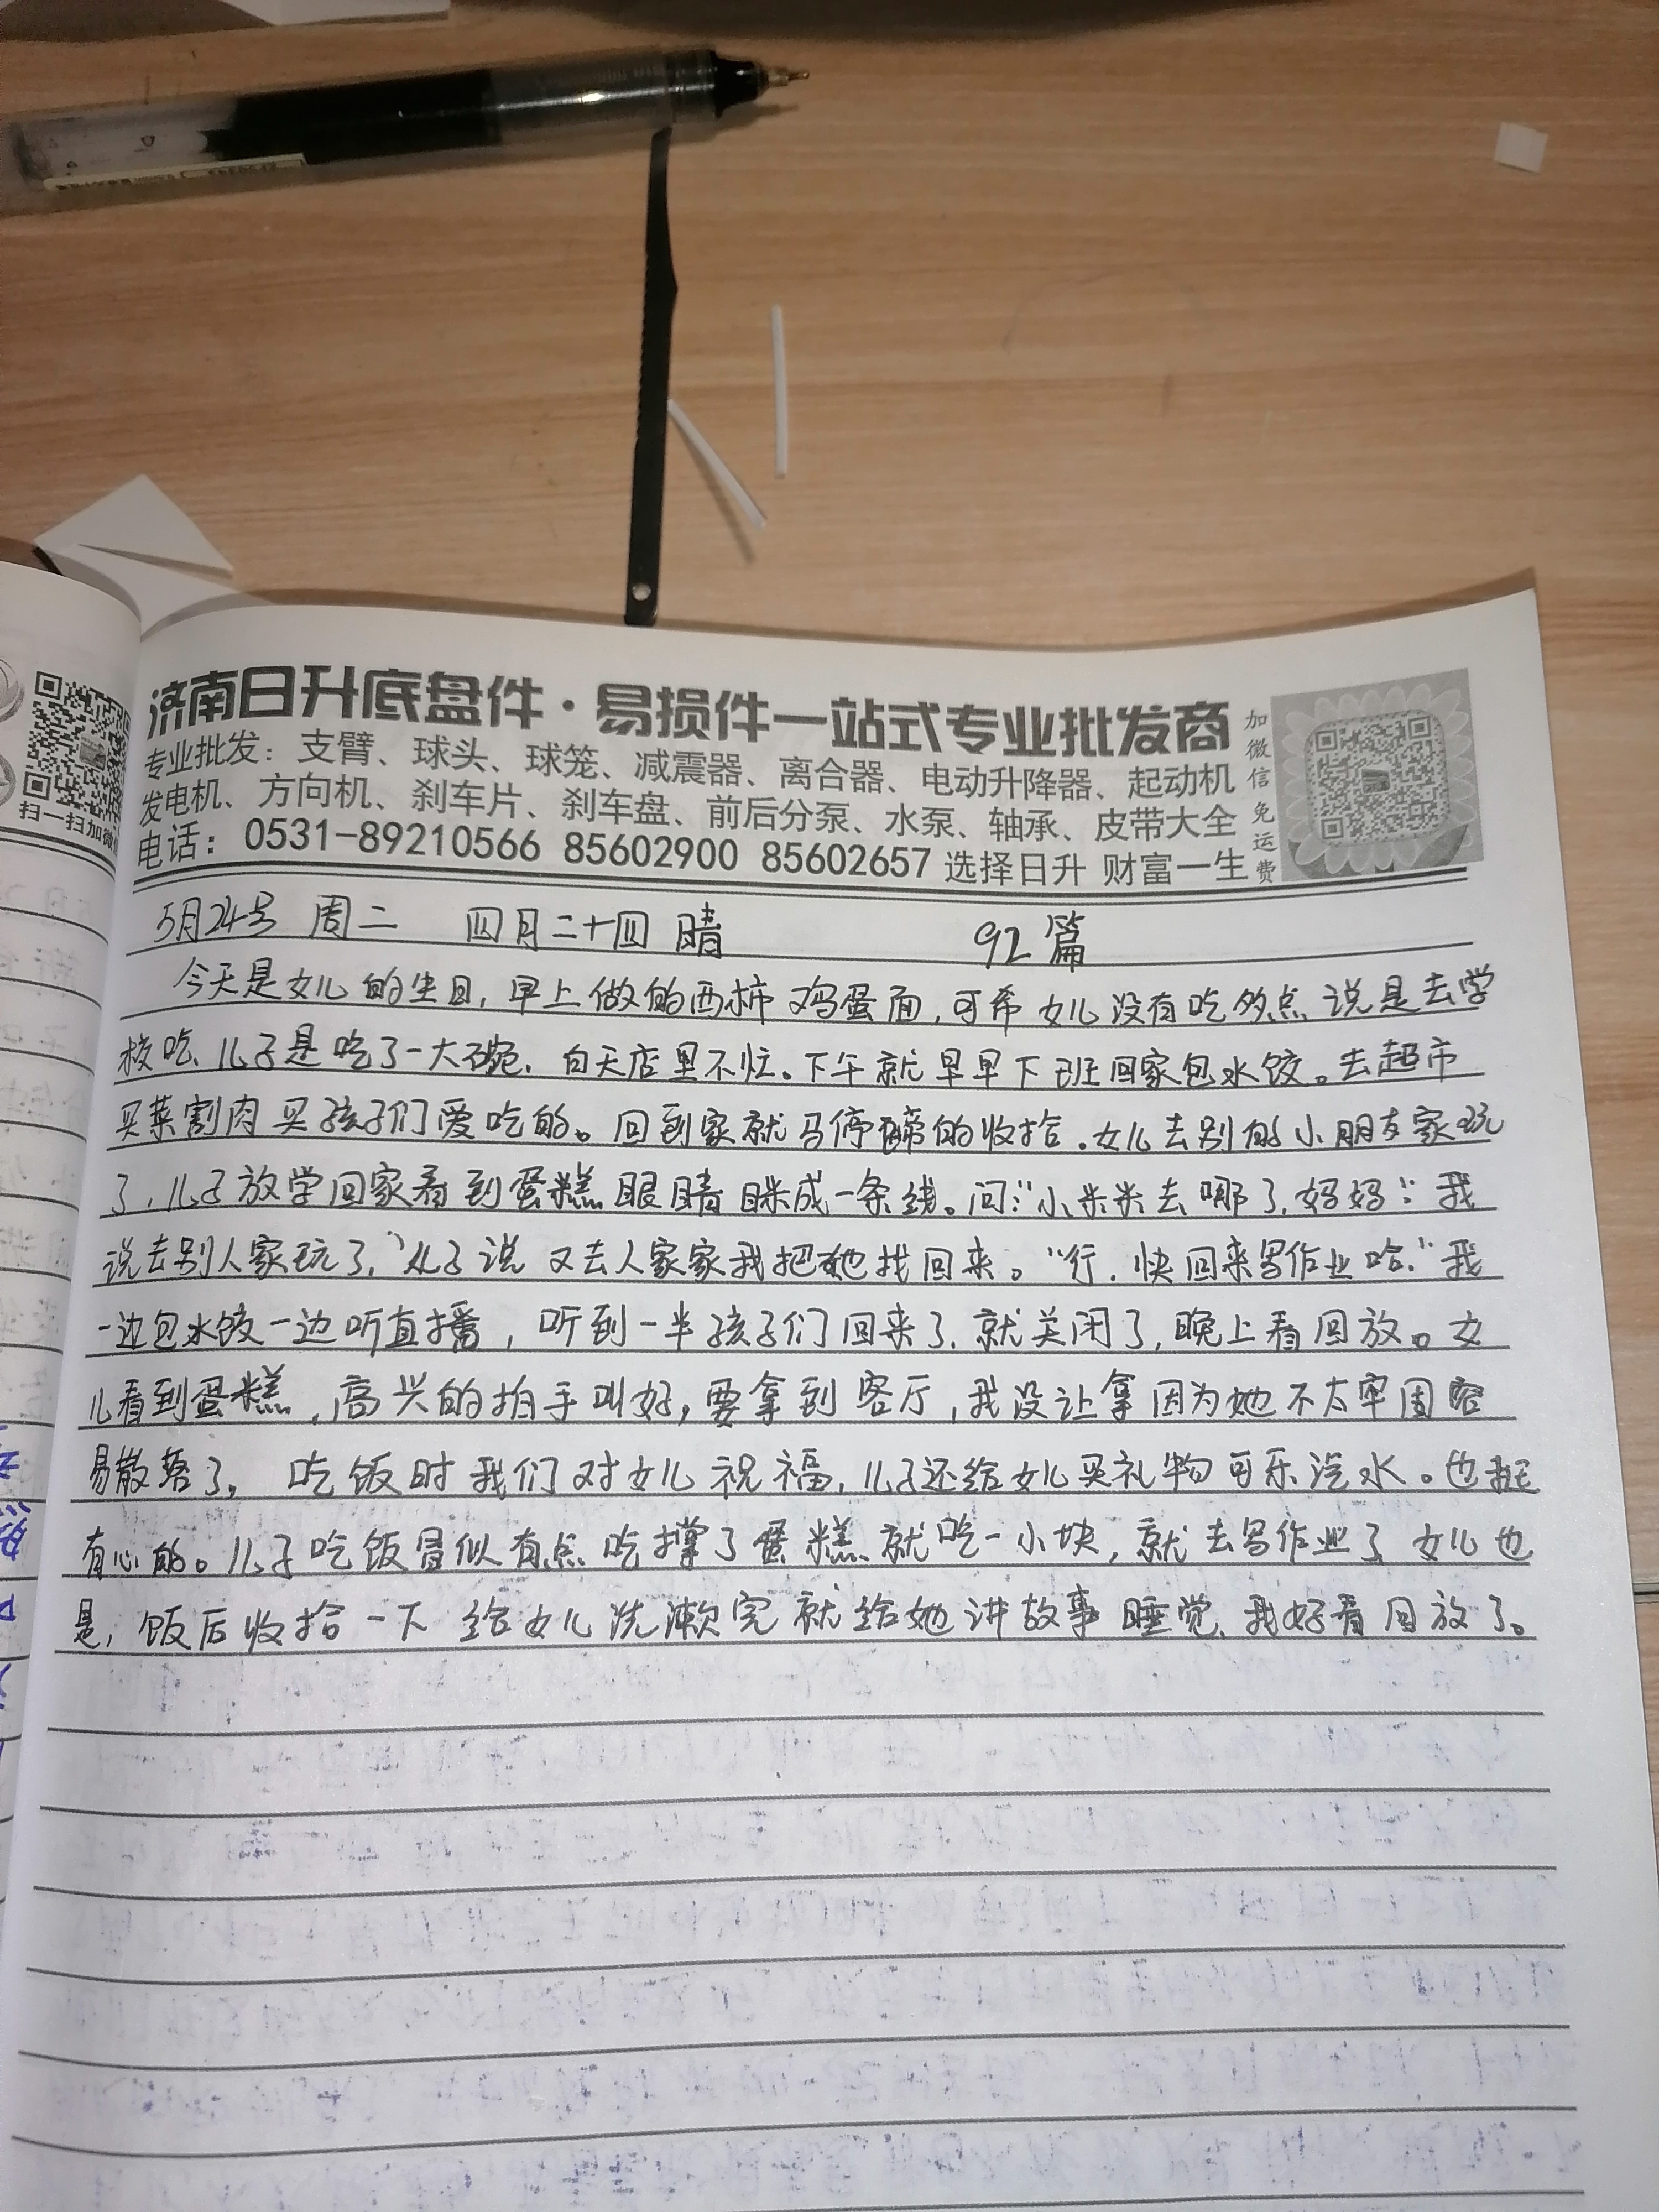 济南日升底盘件·易损件一站式专业批发商
专业批发：支臂、球头、球笼、减震器、离合器、电动升降器、起动机
发电机、方向机、刹车片、刹车盘、前后分泵、水泵、轴承、皮带大全
电话：0531-89210566 85602900 85602657 选择日升 财富一生
加微信免运费
扫一扫加微
5月24号 周二 四月二十四 晴 92篇
今天是女儿的生日，早上做的西柿鸡蛋面，可希女儿没有吃多点 说是去学
校吃、儿子是吃了一大碗．白天店里不忙。下午就早早下班回家包水饺。去超市
买菜割肉买孩子们爱吃的。回到家就马停蹄的收拾．女儿去别的小朋友家玩
了，儿子放学回家看到蛋糕眼睛眯成一条线。问：“小米米去哪了，妈妈：”我
说去别人家玩了，”儿子说 又去人家家我把她找回来。“行．快回来写作业哈．”我
一边包水饺一边听直播，听到一半孩子们回来了．就关闭了，晚上看回放。女
儿看到蛋糕，高兴的拍手叫好，要拿到客厅，我没让拿因为她不太牢固容
易散落了。 吃饭时我们对女儿祝福，儿子还给女儿买礼物可乐汽水。也挺
有心的。儿子吃饭冒似有点吃撑了蛋糕就吃一小块，就去写作业了 女儿也
是，饭后收拾一下 给女儿洗漱完就给她讲故事睡觉．我好看回放了。